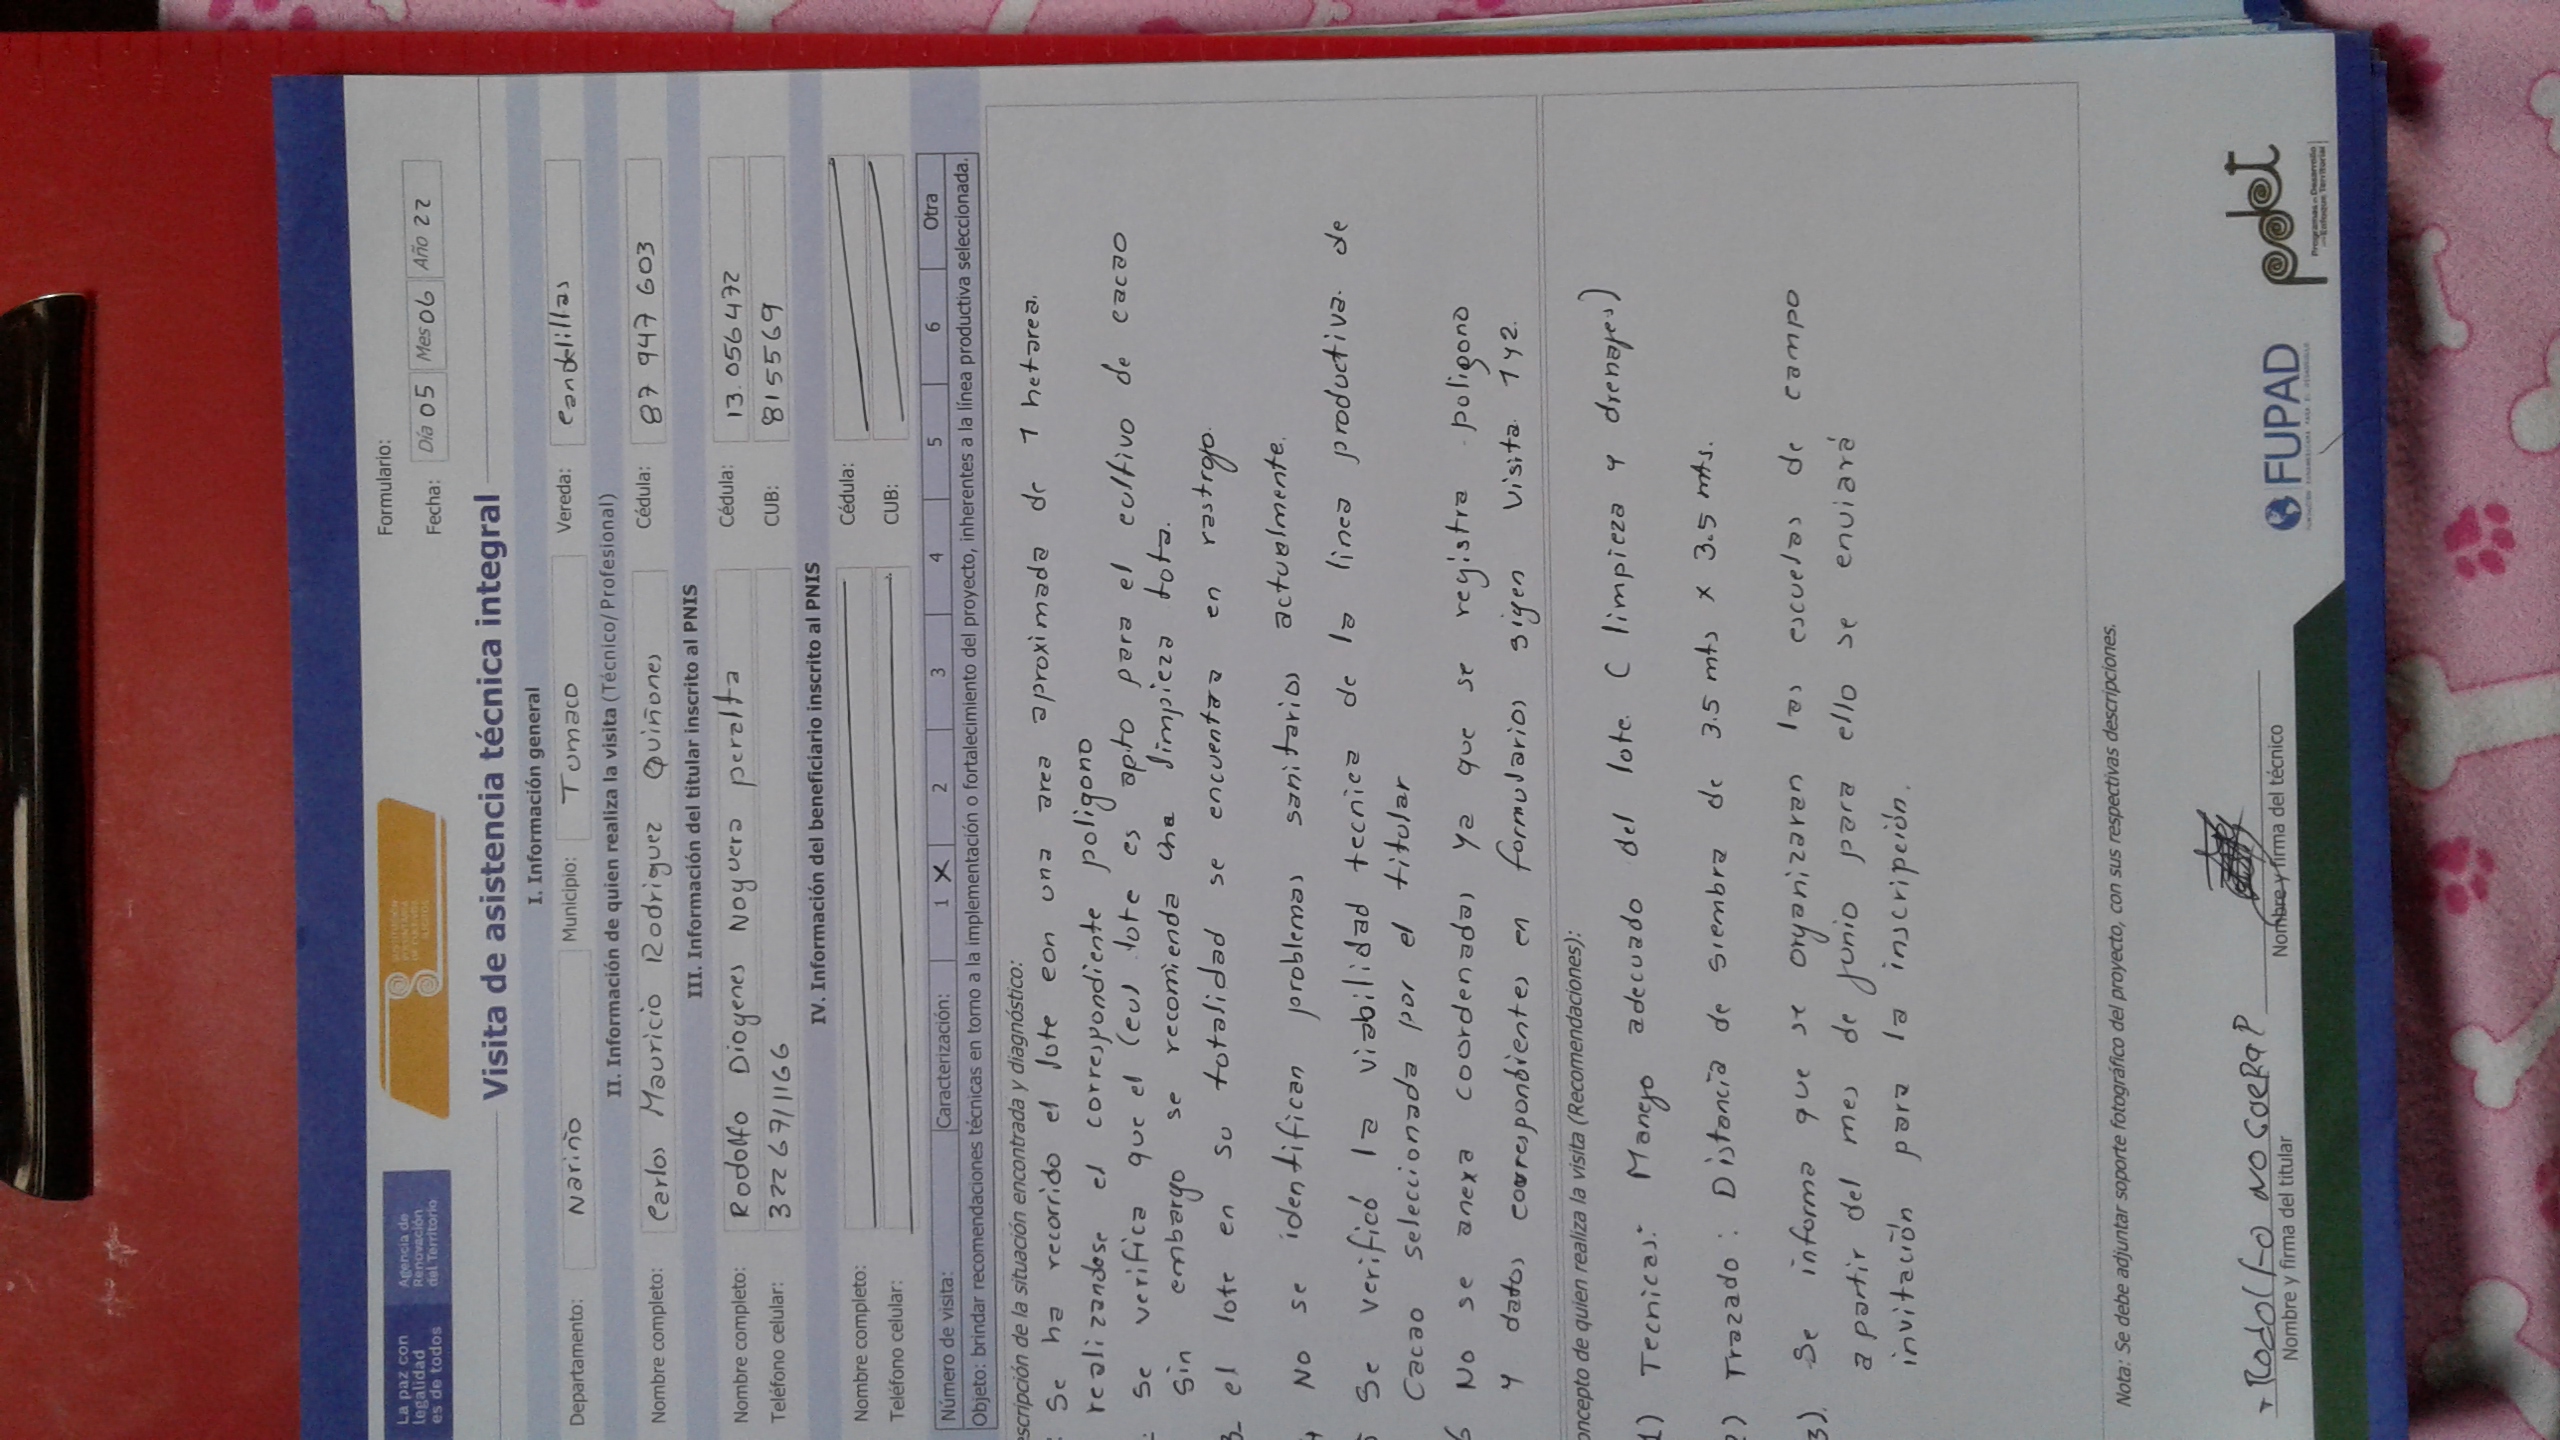 La paz con
legalidad
es de todos
Agencia de
Renovación
del Territorio
SUSTITUCIÓN
VOLUNTARIA
DE CULTIVOS
ILÍCITOS
Formulario:
Fecha: Día 05 Mes 06 Año 22
Visita de asistencia técnica integral
I. Información general
Departamento: Nariño Municipio: Tumaco Vereda: candelillas
II. Información de quien realiza la visita (Técnico/Profesional)
Nombre completo: Carlos Mauricio Rodriguez Quiñones Cédula: 87 947 603
III. Información del titular inscrito al PNIS
Nombre completo: Rodolfo Diogenes Noguera peralta Cédula: 13.056472
Teléfono celular: 3226711166 CUB: 815569
IV. Información del beneficiario inscrito al PNIS
Nombre completo: Cédula:
Teléfono celular: CUB:
Número de visita: Caracterización: 1 X 2 3 4 5 6 Otra
Objeto: brindar recomendaciones técnicas en torno a la implementación o fortalecimiento del proyecto, inherentes a la línea productiva seleccionada.
escripción de la situación encontrada y diagnóstico:
Se ha recorrido el lote con una area aproximada de 1 hetarea.
realizandose el correspondiente poligono
Se verifica que el (eu) lote es apto para el cultivo de cacao
sin embargo se recomienda una limpieza tota.
3- el lote en su totalidad se encuentra en rastrojo.
No se identifican problemas sanitarios actualmente.
Se verificó la viabilidad tecnica de la linea productiva de
Cacao seleccionada por el titular
6 No se anexa coordenadas ya que se registra poligono
y datos correspondientes en formularios sigen visita 1y2.
oncepto de quien realiza la visita (Recomendaciones):
1) Tecnicas: Manejo adecuado del lote (limpieza y drenajes)
2) Trazado: Distancia de siembra de 3.5 mts x 3.5 mts.
3). Se informa que se organizaran las escuelas de campo
a partir del mes de junio para ello se enviará
invitación para la inscripción.
Nota: Se debe adjuntar soporte fotográfico del proyecto, con sus respectivas descripciones.
+ Rodolfo NOGUERA P
Nombre y firma del titular
Nombre y firma del técnico
FUPAD
FUNDACIÓN PANAMERICANA PARA EL DESARROLLO
pdet
Programas de Desarrollo
con Enfoque Territorial